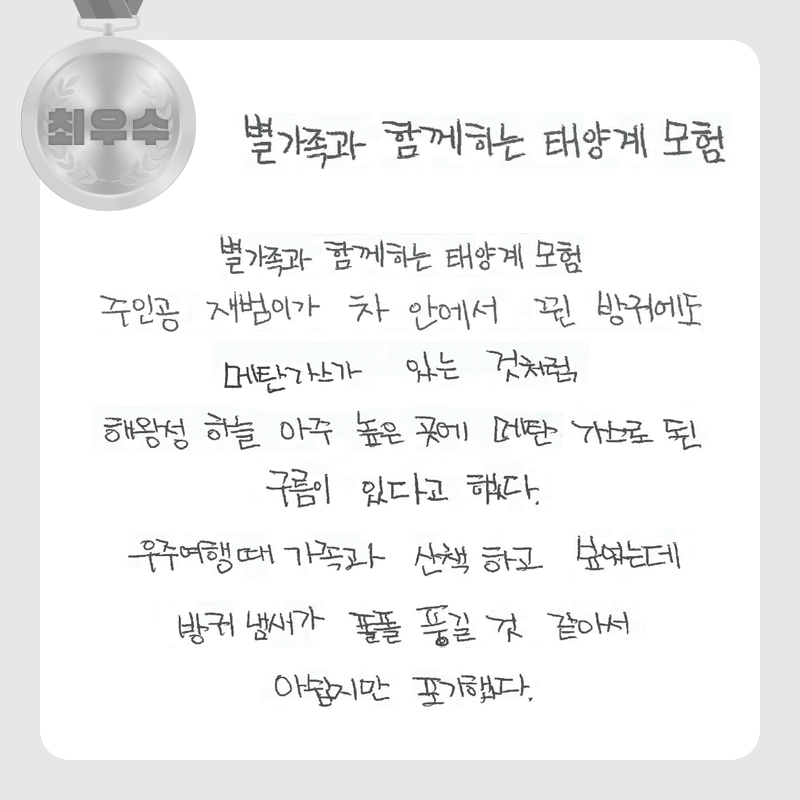 최우수
별가족과 함께하는 태양계 모험
별가족과 함께하는 태양계 모험
주인공 재범이가 차 안에서 뀐 방귀에도
메탄가스가 있는 것처럼,
해왕성 하늘 아주 높은 곳에 메탄 가스로 된
구름이 있다고 했다.
우주여행때 가족과 산책 하고 싶었는데
방귀 냄새가 폴폴 풍길 것 같아서
아쉽지만 포기했다.